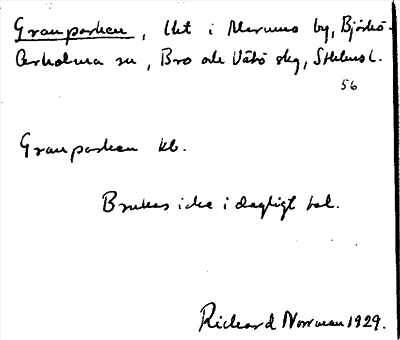 Granparken, lht i Marums by, Björkö-
Arholma sn, Bro och Vätö skg, Sthlms l.
56
Granparken kb.
Brukas icke i dagligt tal.
Rickard Norrman 1929.